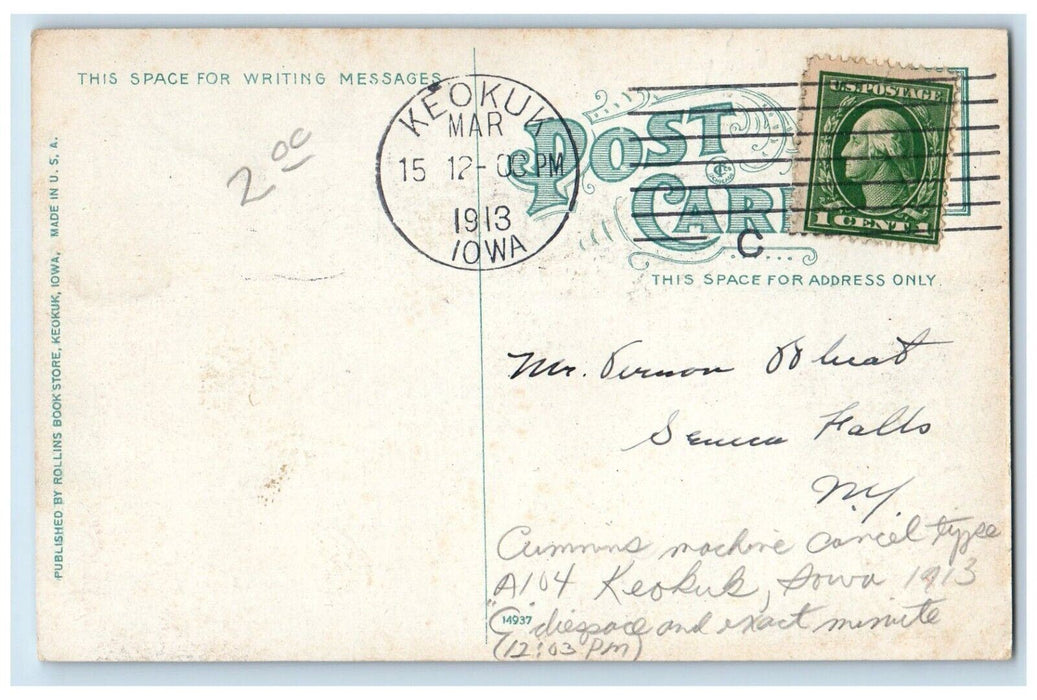 THIS SPACE FOR WRITING MESSAGES
KEOKUK
MAR
15 12-0 PM
1913
IOWA
POST
CAR
U.S. POSTAGE
1 CENT 1
C
THIS SPACE FOR ADDRESS ONLY.
2.00
PUBLISHED BY ROLLINS BOOK STORE, KEOKUK, IOWA, MADE IN U. S. A.
Mr. Vernon Wheat
Seneca Falls
N.Y.
Cummins machine cancel type
A104 Keokuk, Iowa 1913
"C" diespace and exact minute
(12:03 PM)
14937